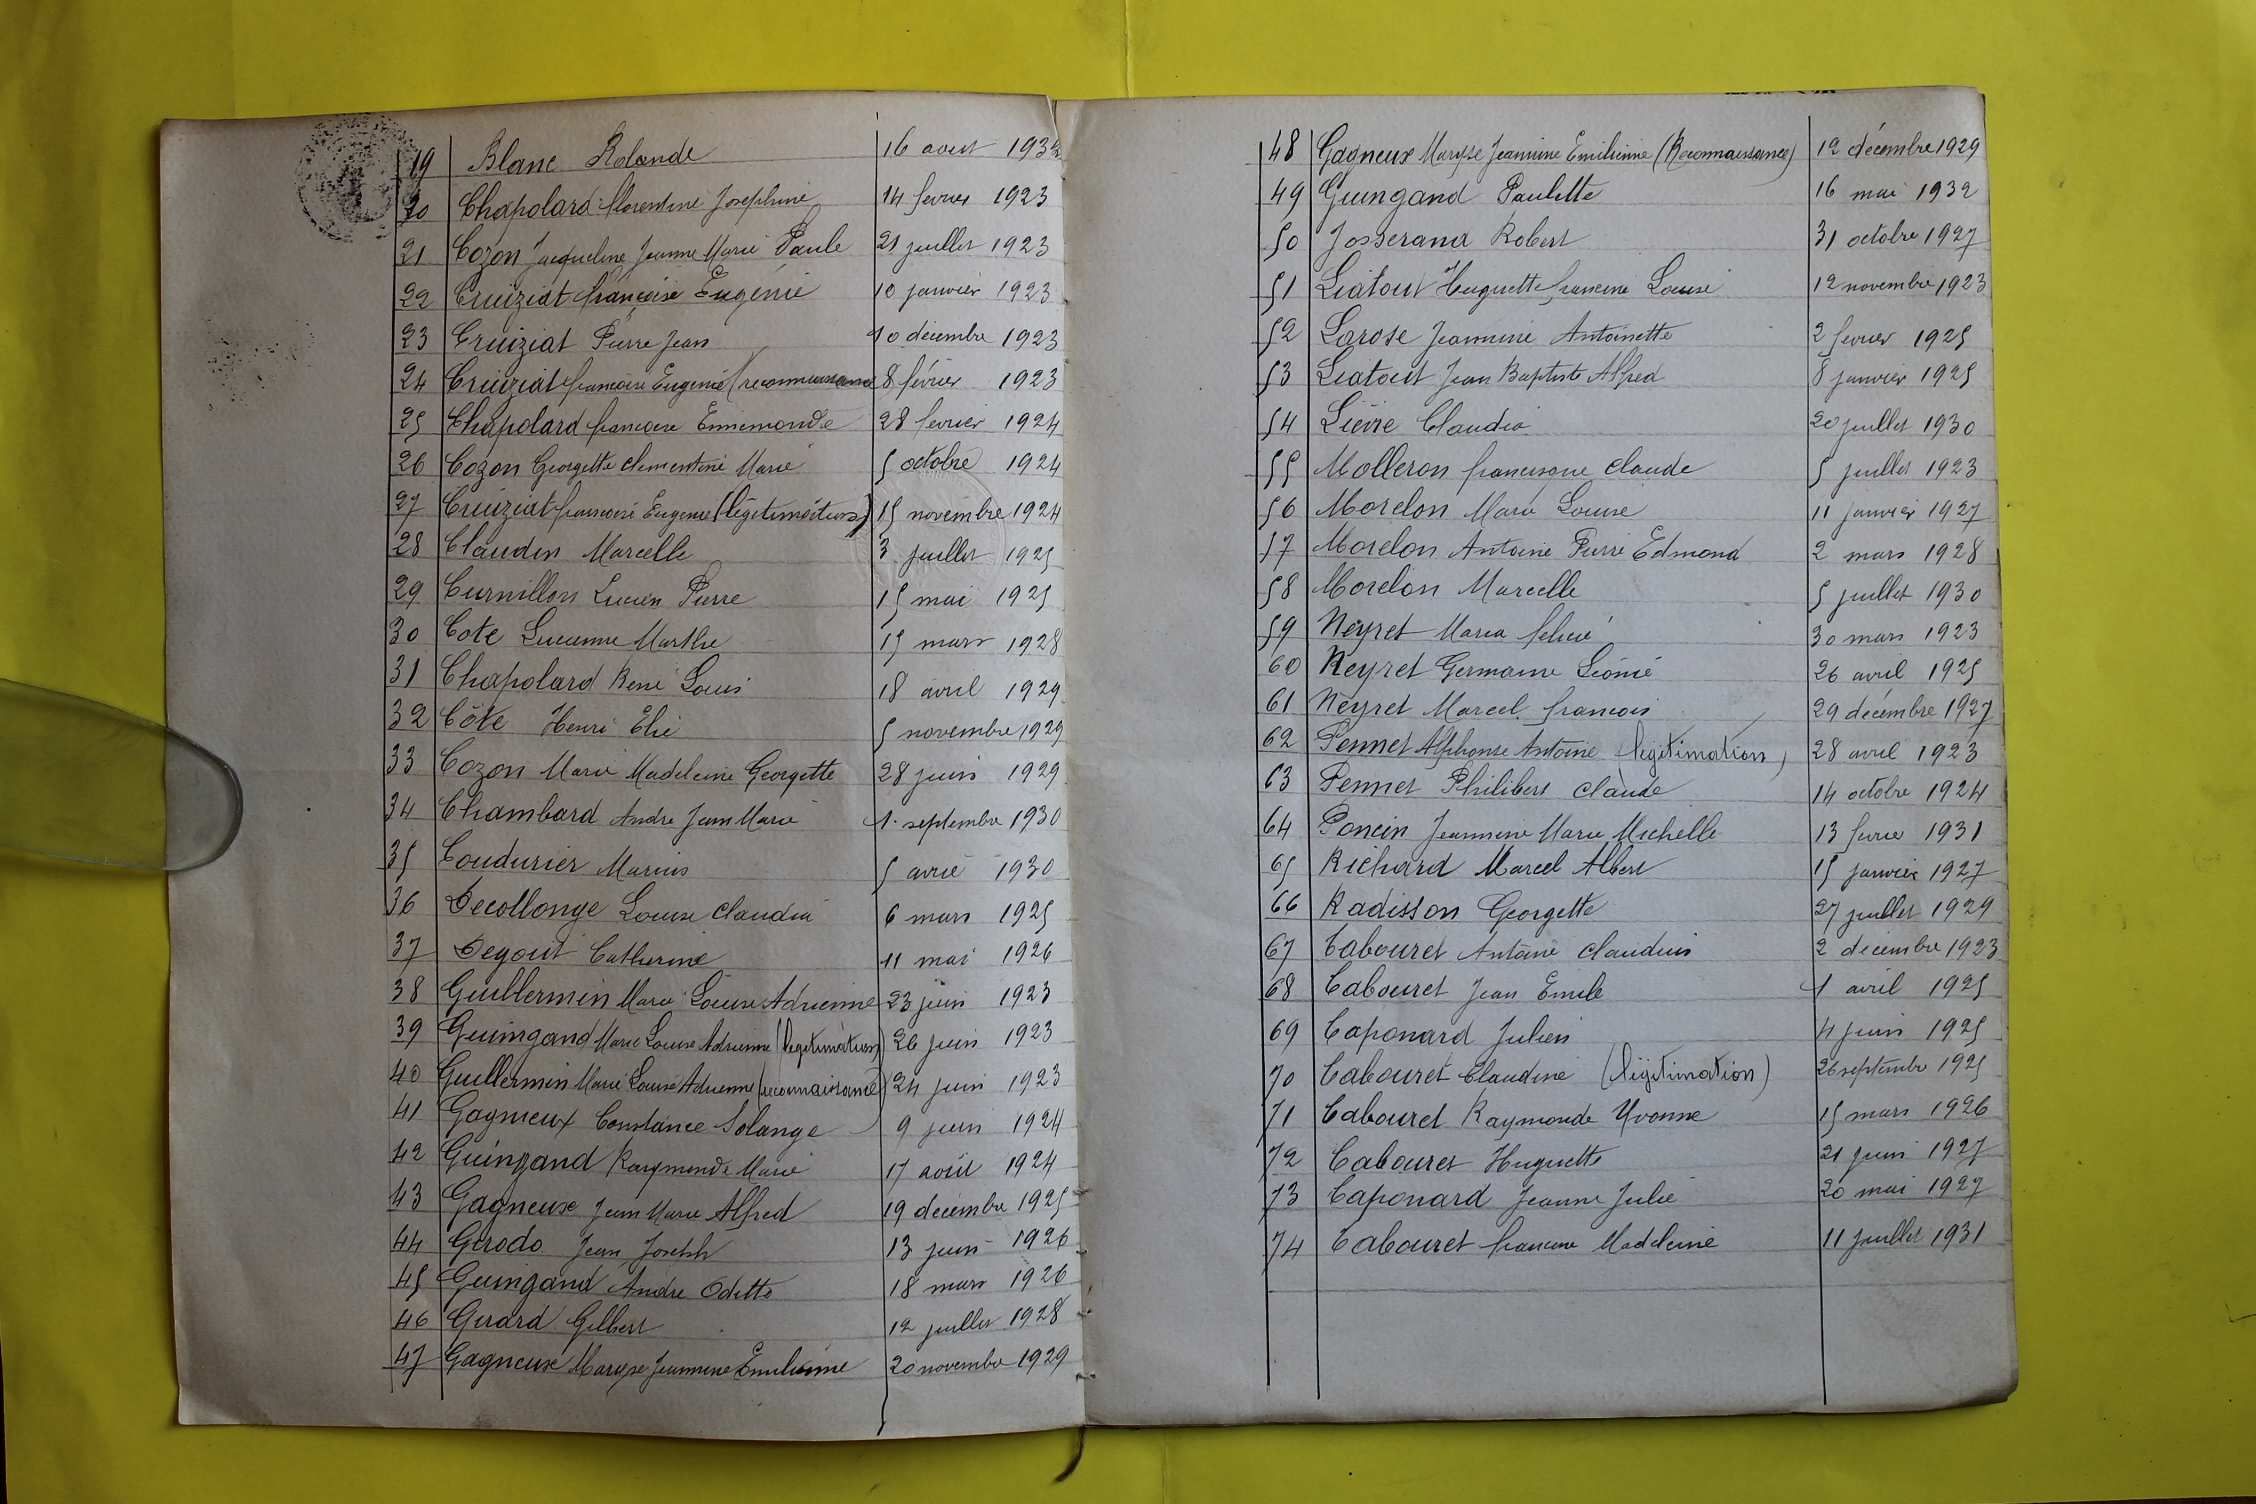 19 Blanc Rolande 16 aout 1932
20 Chapolard florentine Josephine 14 fevrier 1923
21 Cozon Jacqueline Jeanne Marie Paule 21 juillet 1923
22 Cruiziat françoise Eugénie 10 janvier 1923
23 Cruiziat Pierre Jean 10 décembre 1923
24 Cruiziat françoise Eugenie (reconnaissance 8 février 1923
25 Chapolard francoise Ennemonde 28 fevrier 1924
26 Cozon Georgette clementine Marie 5 octobre 1924
27 Cruiziat francoise Eugenie (légitimation) 15 novembre 1924
28 Claudin Marcelle 3 juillet 1925
29 Curnillon Lucien Pierre 15 mai 1925
30 Cote Lucienne Marthe 15 mars 1928
31 Chapolard René Louis 18 avril 1929
32 Côte Henri Elie 5 novembre 1929
33 Cozon Marie Madeleine Georgette 28 juin 1929
34 Chambard Andre Jean Marie 1. septembre 1930
35 Coudurier Marius 5 avril 1930
36 Decollonge Louise Claudia 6 mars 1925
37 Degout Catherine 11 mai 1926
38 Guillermin Marie Louise Adrienne 23 juin 1923
39 Guingand Marie Louise Adrienne (legitimation) 26 juin 1923
40 Guillermin Marie Louise Adrienne (reconnaissance) 24 juin 1923
41 Gagneux Constance Solange 9 juin 1924
42 Guingand Raymonde Marie 17 août 1924
43 Gagneux Jean Marie Alfred 19 décembre 1925
44 Gerodo Jean Joseph 13 juin 1926
45 Guingand Andre Odette 18 mars 1926
46 Girard Gilbert 12 juillet 1928
47 Gagneux Maryse Jeannine Emilienne 20 novembre 1929
48 Gagneux Maryse Jeannine Emilienne (Reconnaissance) 12 décembre 1929
49 Guingand Paulette 16 mai 1932
50 Josserand Robert 31 octobre 1927
51 Liatout Huguette francine Louise 12 novembre 1923
52 Larose Jeannine Antoinette 2 fevrier 1925
53 Liatout Jean Baptiste Alfred 8 janvier 1925
54 Lièvre Claudia 20 juillet 1930
55 Molleron francisque Claude 5 juillet 1923
56 Morelon Marie Louise 11 janvier 1927
57 Morelon Antoine Pierre Edmond 2 mars 1928
58 Morelon Marcelle 5 juillet 1930
59 Neyret Maria felicie 30 mars 1923
60 Neyret Germaine Léonie 26 avril 1925
61 Neyret Marcel francois 29 décembre 1927
62 Pennet Alphonse Antoine (légitimation) 28 avril 1923
63 Pennet Philibert Claude 14 octobre 1924
64 Poncin Jeannine Marie Michelle 13 fevrie 1931
65 Richard Marcel Albert 15 janvier 1927
66 Radisson Georgette 27 juillet 1929
67 Tabouret Antoine Claudius 2 décembre 1923
68 Tabouret Jean Emile 1 avril 1925
69 Taponard Julien 4 juin 1925
70 Tabouret Claudine (légitimation) 26 septembre 1925
71 Tabouret Raymonde Yvonne 15 mars 1926
72 Tabouret Huguette 21 juin 1927
73 Taponard Jeanne Julie 20 mai 1927
74 Tabouret francine Madeleine 11 juillet 1931